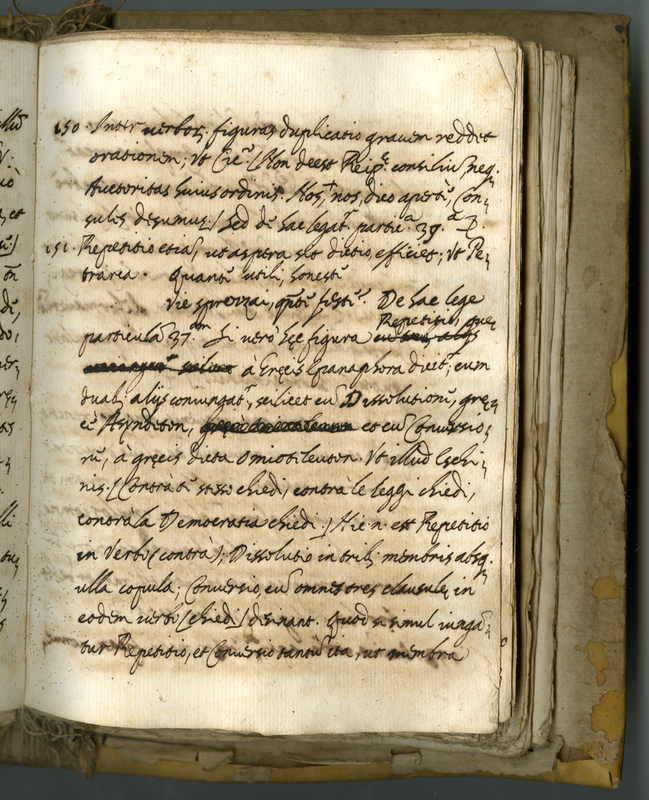 150. Inter verbor. figuras duplicatio gravem reddet
orationem; ut Cic. [Non deest Reip. consiliū, neq.
Auctoritas huius ordinis. Nos, nos, dico apertè, Con,
sules desumus.] Sed dē hac legat. partic. 39.
151. Repetitio etiā, ut aspera sit dictio efficiet; ut Pe,
trarca. Quantū utili, honestū
Vie sprezza, De hac lege
particulā 37. Si verò hęc figura Repetitio, quę
à Gręcis Epanaphora dicit., cum
duab. alijs coniungat., scilicet cū Dissolutionū, gręc,
cè Asyndeton, et cū Conversio,
nū, à gręcis dicta omiotileuton. Ut illud Eschi,
nis. [Contra tè stesso chiedi, contrà le leggi chiedi,
contrà la Democratia chiedi.] Hic n. est Repetitio
in Verbi (contrà); Dissolutio in trib. membris absq.
ulla copula; Conversio, cū omnes tres clausulę, in
eodem verbi [chiedi] desinant. Quod si simul iungā,
tur Repetitio, et Conversio tantū ita, ut membra